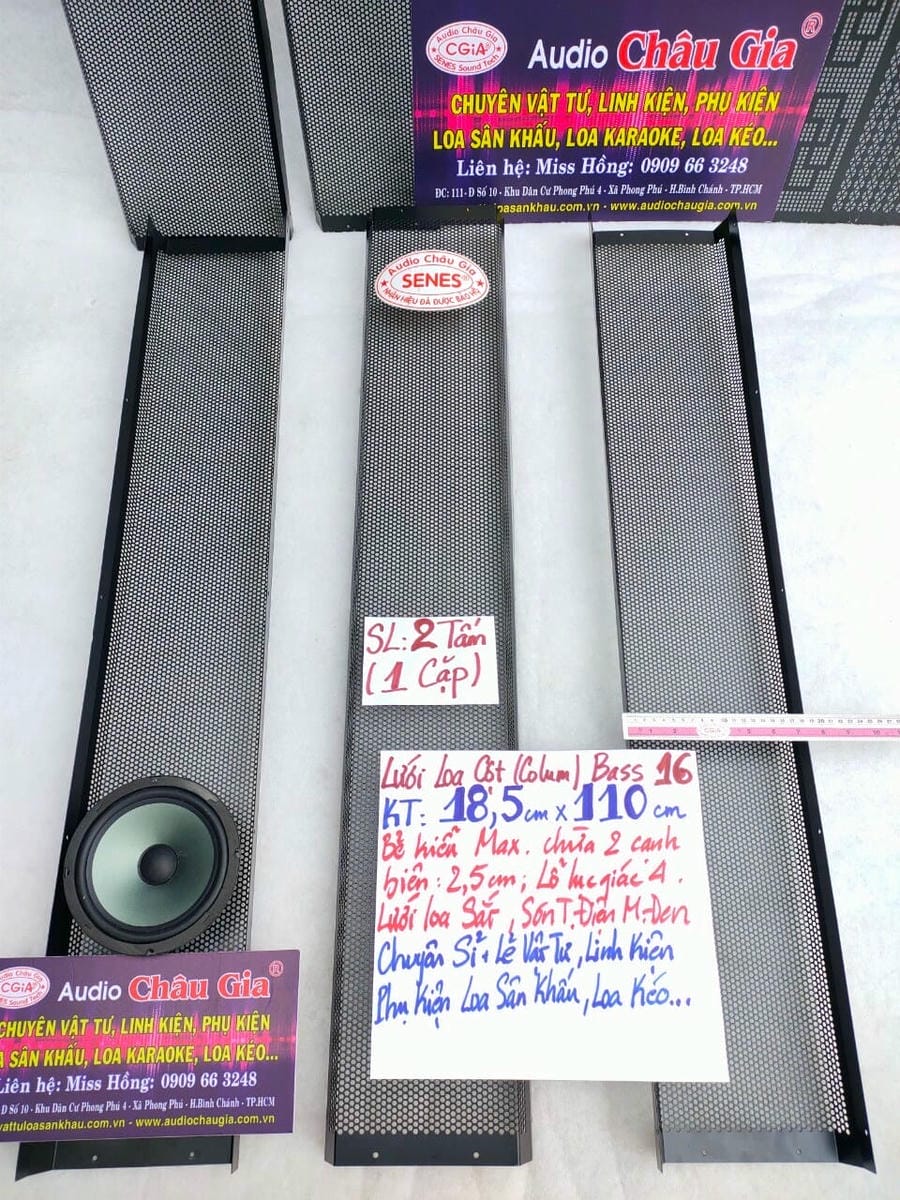 Audio Châu Gia
CGiA®
SENES Sound Tech
Audio Châu Gia®
CHUYÊN VẬT TƯ, LINH KIỆN, PHỤ KIỆN
LOA SÂN KHẤU, LOA KARAOKE, LOA KÉO...
Liên hệ: Miss Hồng: 0909 66 3248
ĐC: 111- Đ Số 10 - Khu Dân Cư Phong Phú 4 - Xã Phong Phú - H.Bình Chánh - TP.HCM
loasankhau.com.vn - www.audiochaugia.com.vn
Audio Châu Gia
SENES®
NHÃN HIỆU ĐÃ ĐƯỢC BẢO HỘ
SL: 2 Tấm
(1 Cặp)
CGiA
Lưới Loa Cột (Colum) Bass 16
KT: 18,5cm x 110 cm
Bẻ kiểu Max. chừa 2 cạnh
biên: 2,5cm; Lỗ lục giác 4.
Lưới loa Sắt, Sơn T.Điện M.Đen
Chuyên Sỉ + Lẻ Vật Tư, Linh Kiện
Phụ Kiện Loa Sân Khấu, Loa Kéo...
Audio Châu Gia
CGiA®
SENES Sound Tech
Audio Châu Gia®
CHUYÊN VẬT TƯ, LINH KIỆN, PHỤ KIỆN
A SÂN KHẤU, LOA KARAOKE, LOA KÉO...
Liên hệ: Miss Hồng: 0909 66 3248
Đ Số 10 - Khu Dân Cư Phong Phú 4 - Xã Phong Phú - H.Bình Chánh - TP.HCM
vattuloasankhau.com.vn - www.audiochaugia.com.vn